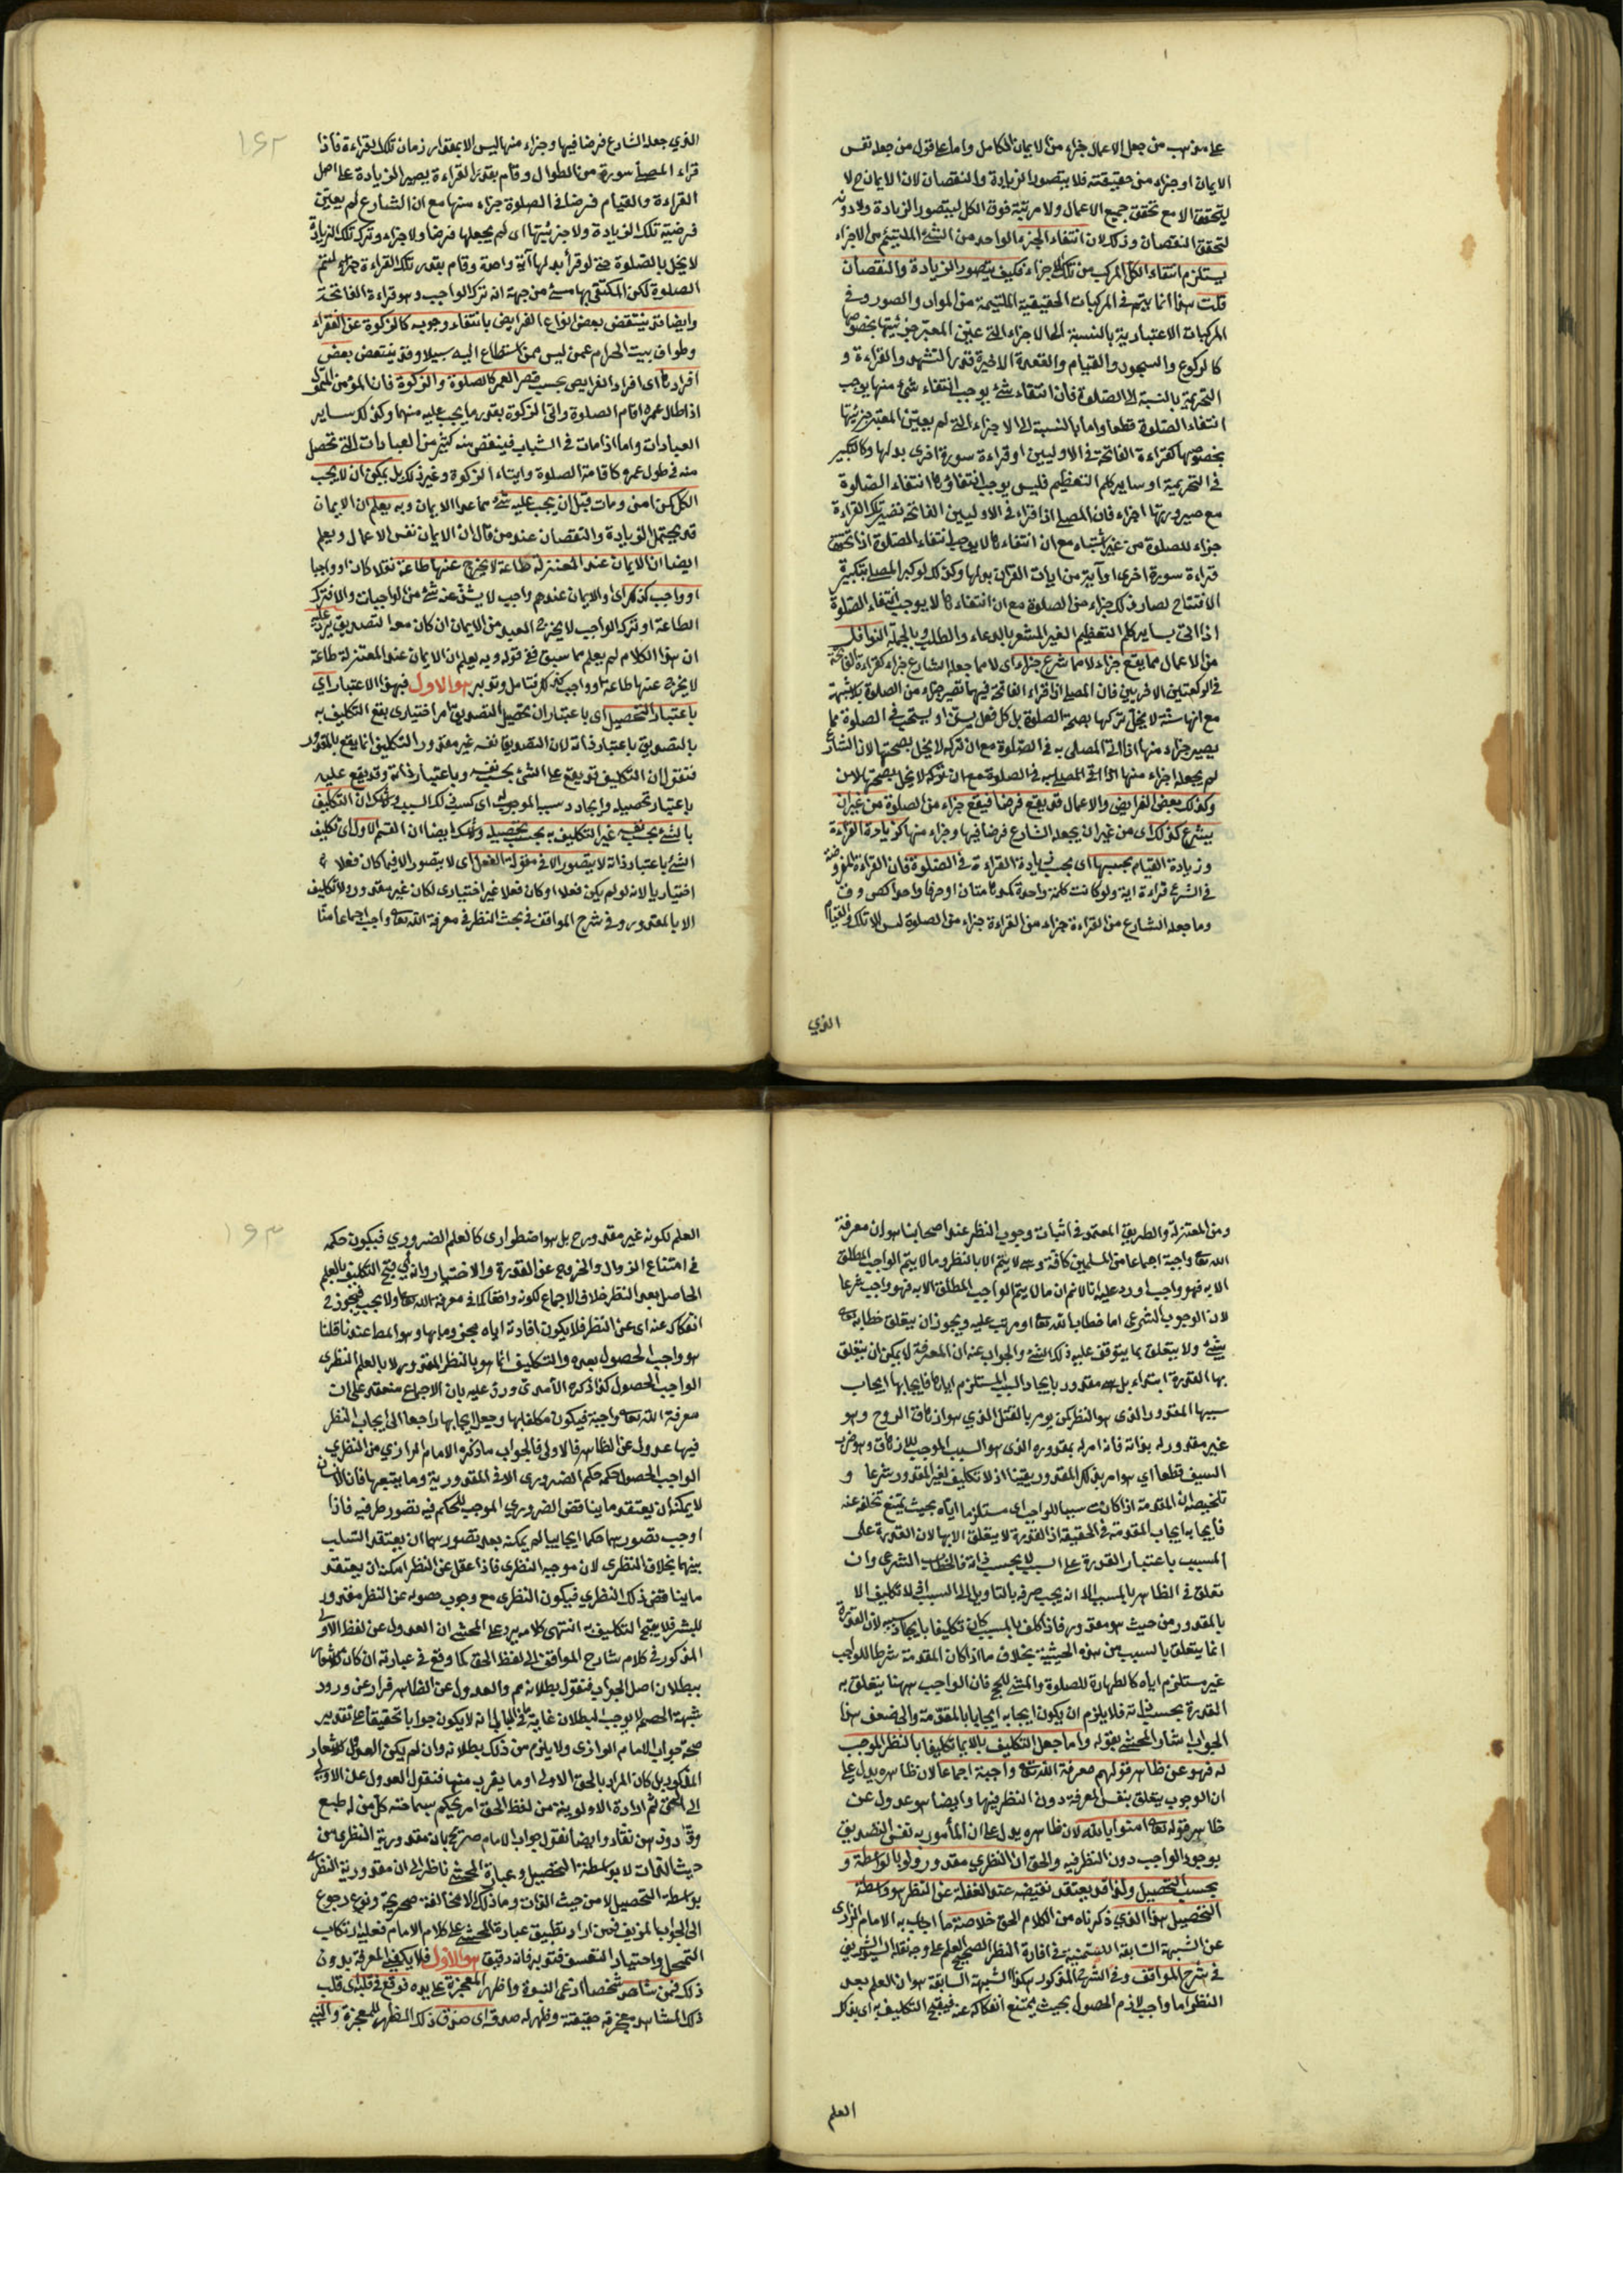 على مذهب من جعل الاعمال جزاء من الايمان الكامل واما على قول من جعله نفس
الايمان او جزاء من حقيقته فلا يتصور الزيادة والنقصان لان الايمان ح لا
يتحقق الا مع تحقق جميع الاعمال ولا مرتبة فوق الكل ليتصور الزيادة ولا دونه
لتحقق النقصان وذلك لان انتفاء الجزء الواحد من الشئ الملتئم من الاجزاء
يستلزم انتفاء الكل المركب من تلك الاجزاء فكيف يتصور الزيادة والنقصان
قلت هذا انما يتم في المركبات الحقيقية الملتئمة من المواد والصور وفي
المركبات الاعتبارية بالنسبة الى الاجزاء التي عين المعتبر جزئيتها بخصوصها
كالركوع والسجود والقيام والقعدة الاخيرة قدر التشهد والقراءة و
التحريمة بالنسبة الى الصلوة فان انتفاء شئ يوجب انتفاء شئ منها يوجب
انتفاء الصلوة قطعا واما بالنسبة الى الاجزاء التي لم يعين المعتبر جزئيتها
بخصوصها كقراءة الفاتحة في الاوليين او قراءة سورة اخرى بدلها وكالتكبير
في التحريمة او ساير كلم التعظيم فليس يوجب انتفاؤها انتفاء الصلوة
مع صيرورتها اجزاء فان المصلي اذا قراء في الاوليين الفاتحة تصير تلك القراءة
جزاء للصلوة من غير اشتباه مع ان انتفاءها لا يوجب انتفاء الصلوة اذا تحقق
قراءة سورة اخرى او آية من ايات القرآن بدلها وكذلك لو كبر المصلي بتكبيرة
الافتتاح لصار ذلك جزاء من الصلوة مع ان انتفاءها لا يوجب انتفاء الصلوة
اذا اتى بساير كلم التعظيم الغير المشعر بالدعاء والطلب وبالجملة النوافل
من الاعمال مما يقع جزاء لا مما شرع جزاء اى لا مما جعله الشارع جزاء كقراءة الفاتحة
في الركعتين الاخريين فان المصلي اذا قراء الفاتحة فيهما تصير جزاء من الصلوة بلا شبهة
مع انها سنة لا يخل تركها بصحة الصلوة بل كل فعل يسن او يستحب في الصلوة مما
يصير جزاء منها اذا اتى المصلي به في الصلوة مع ان تركه لا يخل بصحتها لان الشارع
لم يجعله اجزاء منها اذا اتى المصلي به في الصلوة مع ان تركه لا يخل بصحتها لان
وكذلك بعض الفرايض والاعمال قد يقع فرضا فيقع جزاء من الصلوة من غير ان
يشرع كذلك اى من غير ان يجعله الشارع فرضا فيها وجزاء منها كزيادة القراءة
وزيادة القيام بحسبها اى بحسب زيادة القراءة في الصلوة فان القراءة المفروضة
في الشرع قراءة اية ولو كانت كلمة واحدة كمدهامتان او حرفا واحدا كص وق
وما جعله الشارع من القراءة جزاء من القراءة جزاء من الصلوة ليس الا تلك والقيام
الذي
الذي جعله الشارع فرضا فيها وجزاء منها ليس الا بمقدار زمان تلك القراءة فاذا
قراء المصلي سورة من الطوال وقام بقدر القراءة يصير الزيادة على اصل
القراءة والقيام فرضا في الصلوة جزاء منها مع ان الشارع لم يعين
فرضية تلك الزيادة ولا جزئيتها اى لم يجعلها فرضا ولا جزاء وترك تلك الزيادة
لا يخل بالصلوة حتى لو قرأ بدلها آية واحدة وقام بقدر تلك القراءة لتتم
الصلوة لكن المكتفى بها مسئ من جهة انه ترك الواجب وهو قراءة الفاتحة
وايضا قد ينتقض بعض انواع الفرايض بانتفاء وجوبه كالزكوة عن الفقراء
وطواف بيت الحرام عمن ليس ممن استطاع اليه سبيلا وقد ينتقض بعض
افرادها اى افراد الفرايض بحسب قصر العمر كالصلوة والزكوة فان المؤمن المتمول
اذا طال عمره اقام الصلوة واتى الزكوة بقدر ما يجب عليه منهما وكذلك ساير
العبادات واما اذا مات في الشباب فينقص منه كثير من العبادات التي تحصل
منه في طول عمره كاقامة الصلوة وايتاء الزكوة وغير ذلك بل يمكن ان لا يجب
الكل كمن امن ومات قبل ان يجب عليه شئ مما عدا الايمان وبه يعلم ان الايمان
قد يحتمل الزيادة والنقصان عند من قال ان الايمان نفس الاعمال ويعلم
ايضا ان الايمان عند المعتزلة طاعة لا يخرج عنها طاعة نفلا كان او واجبا
او واجب كذلك اى والايمان عندهم واجب لا يشذ عنه شئ من الواجبات والا فترك
الطاعة او ترك الواجب لا يخرج العبد من الايمان ان كان معه التصديق يرد عليه
ان هذا الكلام لم يعلم مما سبق ففي قوله وبه يعلم ان الايمان عند المعتزلة طاعة
لا يخرج عنها طاعة او واجب كذلك فتامل وتدبر هو الاول فبهذا الاعتبار اي
باعتبار التحصيل اى باعتبار ان تحصيل التصديق امر اختيارى يقع التكليف به
بالتصديق باعتبار ذاته لان التصديق نفسه غير مقدور والتكليف انما يقع بالمقدور
فنقول ان التكليف قد يقع على الشئ بحسب نفسه وباعتبار ذاته وقد يقع عليه
باعتبار تحصيله وايجاد سببه الموجب له اى كسب ذلك السبب ولا شك ان التكليف
بالشئ بحسب نفسه غير التكليف به بحسب تحصيله ولا شك ايضا ان القسم الاول اى تكليف
الشئ باعتبار ذاته لا يتصور الا في مقولة الفعل اى لا يتصور الا فيما كان فعلا
اختياريا لانه لو لم يكن فعلا او كان فعلا غير اختيارى لكان غير مقدور ولا تكليف
الا بالمقدور وفي شرح المواقف في بحث النظر في معرفة الله تعالى واجب اجماعا منا
ومن المعتزلة والطريق المعتمد في اثبات وجوب النظر عند اصحابنا هو ان معرفة
الله تعالى واجبة اجماعا من المسلمين كافة وهي لا يتم الا بالنظر وما لا يتم الواجب المطلق
الا به فهو واجب اورد عليه انا لا نم ان ما لا يتم الواجب المطلق الا به فهو واجب شرعا
لان الوجوب الشرعي اما خطاب الله تعالى او مرتب عليه ويجوز ان يتعلق خطابه تعالى
بشئ ولا يتعلق بما يتوقف عليه ذلك الشئ والجواب عنه ان المعرفة لا يمكن ان يتعلق
بها القدرة ابتداء بل هي مقدور بايجاد السبب المستلزم اياه فايجابها ايجاب
سببها المقدور الذى هو النظر كمن يومر بالقتل الذي هو ازهاق الروح وهو
غير مقدور له بذاته فانه امر له بمقدوره الذى هو السبب الموجب للازهاق وهو ضرب
السيف قطعا اي هو امر بذلك المقدور يقينا اذ لا تكليف بغير المقدور شرعا و
تلخيصه ان المقدمة اذا كانت سببا للواجب اى مستلزما اياه بحيث يمتنع تخلفه عنه
فايجابه ايجاب المقدمة في الحقيقة اذ القدرة لا يتعلق الا بها لان القدرة على
المسبب باعتبار القدرة على السبب لا بحسب ذاته فالخطاب الشرعي وان
تعلق في الظاهر بالمسبب الا انه يجب صرفه بالتاويل الى السبب اذ لا تكليف الا
بالمقدور من حيث هو مقدور فاذا كلف بالمسبب كان تكليفا بايجاد سببه لان القدرة
انما يتعلق بالسبب من هذه الحيثية بخلاف ما اذا كان المقدمة شرطا للواجب
غير مستلزم اياه كالطهارة للصلوة والمشي للحج فان الواجب ههنا يتعلق به
القدرة بحسب ذاته فلا يلزم ان يكون ايجابه ايجابا بالمقدمة والى ضعف هذا
الجواب اشار المحشي بقوله واما جعل التكليف بالايمان تكليفا بالنظر الموجب
له فهو عن ظاهر قولهم معرفة الله تعالى واجبة اجماعا لان ظاهره يدل على
ان الوجوب يتعلق بنفس المعرفة دون النظر فيها وايضا هو عدول عن
ظاهر قوله تعالى امنوا بالله لان ظاهره يدل على ان المأمور به نفس التصديق
بوجود الواجب دون النظر فيه والحق ان النظري مقدور ولو بالواسطة و
بحسب التحصيل ولذا قد يعتقد نقيضه عند الغفلة عن النظر هو واسطة
التحصيل هذا الذي ذكرناه من الكلام الحق خلاصة ما اجاب به الامام الرازى
عن الشبهة السابقة السمنية في افادة النظر الصحيح العلم على وجه نقله السيد الشريف
في شرح المواقف وفي الشرح المذكور هكذا الشبهة السابقة هو ان العلم بعد
النظر اما واجب لازم الحصول بحيث يمتنع انفكاكه عنه فيقبح التكليف به اى بذلك
العلم
العلم لكونه غير مقدور ح بل هو اضطرارى كالعلم الضروري فيكون حكمه
في امتناع الزوال والخروج عن القدرة والاختيار وانه اي قبح التكليف بالعلم
الحاصل بعد النظر خلاف الاجماع لكونه واقعا كما في معرفة الله تعالى او لا يجب فيجوز ح
انفكاكه عنه اى عن النظر فلا يكون افادته اياه مجزوما بها وهو المط عندنا قلنا
هو واجب الحصول بعده والتكليف انما هو بالنظر المقدور لا بالعلم النظرى
الواجب الحصول كذا ذكره الآمدى ورد عليه بان الاجماع منعقد على ان
معرفة الله تعالى واجبة فيكون مكلفا بها وجعل ايجابها راجعا الى ايجاب النظر
فيها عدول عن الظاهر فالاولى فالجواب ما ذكره الامام الرازي من النظري
الواجب الحصول حكمه حكم الضروري الا في المقدورية وما يتبعها فان الانسان
لا يمكنه ان يعتقد ما يناقض الضروري الموجب للحكم فيه تصور طرفيه فاذا
اوجب تصورهما حكما ايجابيا لم يمكنه بعد تصورهما ان يعتقد السلب
بينهما بخلاف النظرى لان موجبه النظرى فاذا غفل عن النظر امكنه ان يعتقد
ما يناقض ذلك النظري فيكون النظرى مع وجوب حصوله عن النظر مقدور
للبشر فلا يقبح التكليف به انتهى كلامه يرد على المحشي ان العدول عن لفظ الاولى
المذكور في كلام شارح المواقف الى لفظ الحق كما وقع في عبارته ان كان
ببطلان اصل الجواب فنقول بطلانه مم والعدول عن الظاهر فرار عن ورود
شبهة الخصم لا يوجب البطلان غاية الى انه لا يكون جوابا تحقيقا على تقدير
صحة جواب الامام الرازى ولا يلزم من ذلك بطلانه وان لم يكن العدول للاشعار
المذكور بل كان المراد بالحق الاولى او ما يقرب منها فنقول العدول عن الاولى
الى الحق ثم الارادة الاولوية من لفظ الحق امر يحكم بسماجته كل من له طبع
وقاد وذهن نقاد وايضا نقول جواب الامام صريح بان مقدورية النظرى من
حيث الذات لا بواسطة التحصيل وعبارة المحشي ناظر الى ان مقدورية النظر
بواسطة التحصيل لا من حيث الذات وما ذلك الا مخالفة صريحة ونوع رجوع
الى الجواب المزيف فمن اراد تطبيق عبارة المحشي على كلام الامام فعليه ارتكاب
التمحل واختيار التعسف فتدبر فانه دقيق هو الاول فلا يكفي المعرفة بدون
ذلك فمن شاهد شخصا ادعى النبوة واظهر المعجزة على يده فوقع في قلبه اى قلب
ذلك المشاهد معجزته حقيقته وظهر له صدقه اى صدق ذلك المظهر للمعجزة والنبي